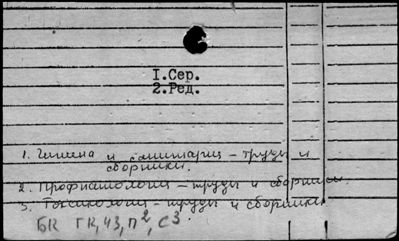 I.Сер.
2.Ред.
1. Гигиена и санитария – труды и
сборники.
2. Профпатология – труды и сборники.
3. Токсикология – труды и сборники
БК ГК, 43, П2, С3.